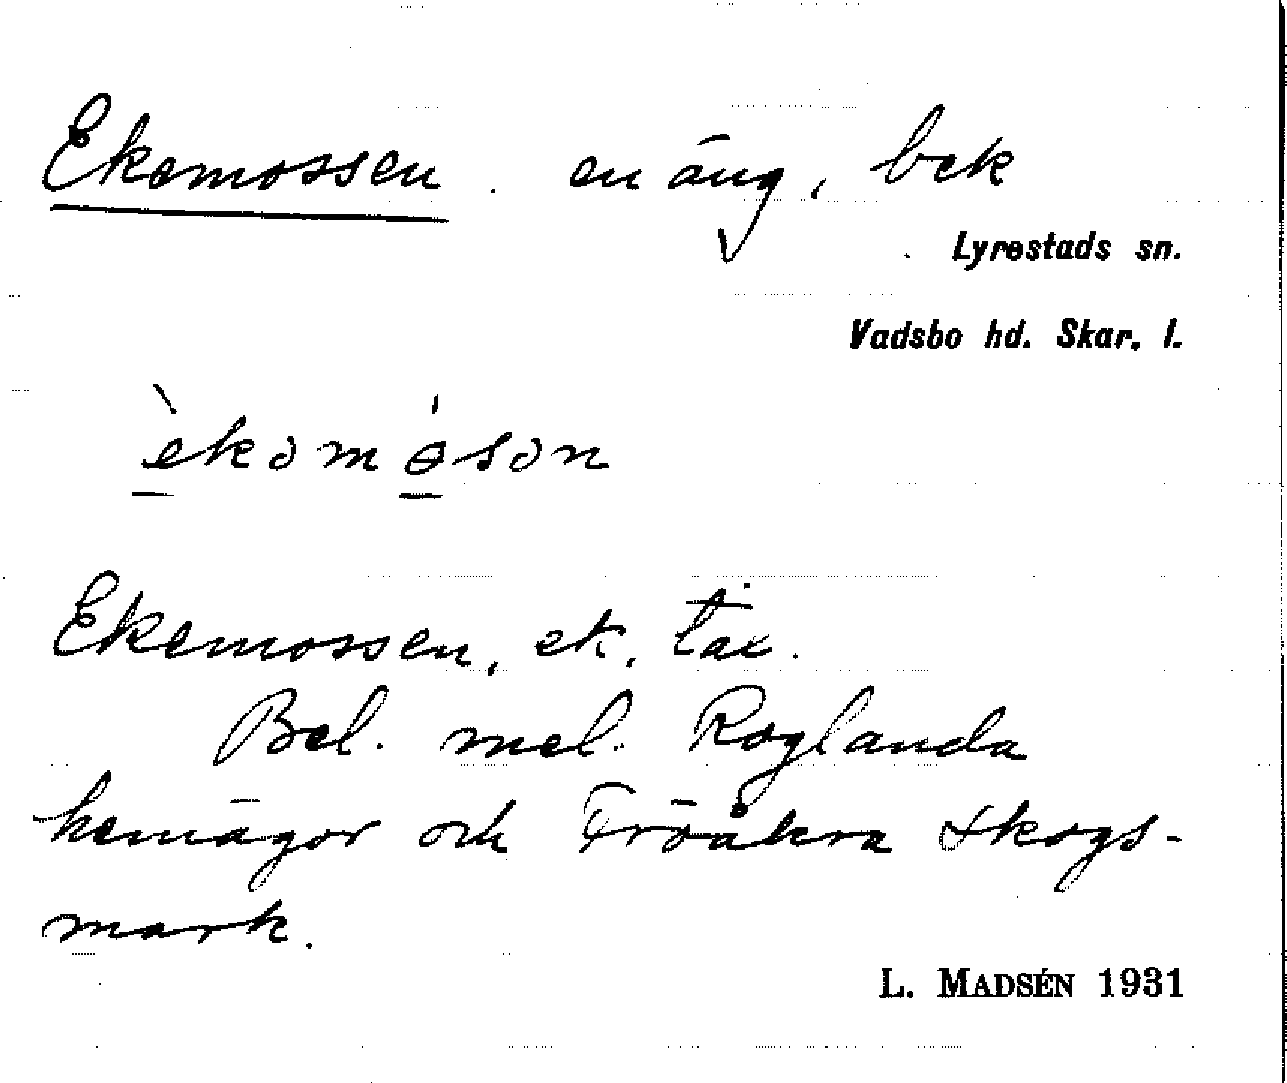 Ekemossen. en äng, bek
Lyrestads sn.
Vadsbo hd. Skar. l.
èkomóson
Ekemossen, ek,
Bel. mel. Roglanda
hemägor och Fröåkra skogs-
mark.
L. MADSÉN 1931